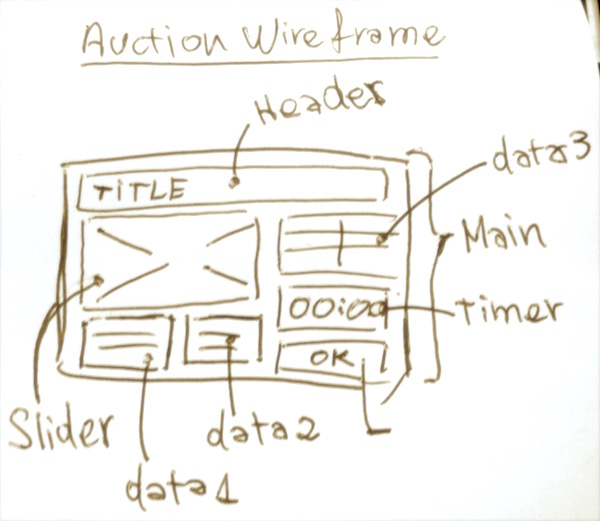 Auction Wireframe
Header
data3
TITLE
Main
00:00
Timer
OK
Slider
data2
data1